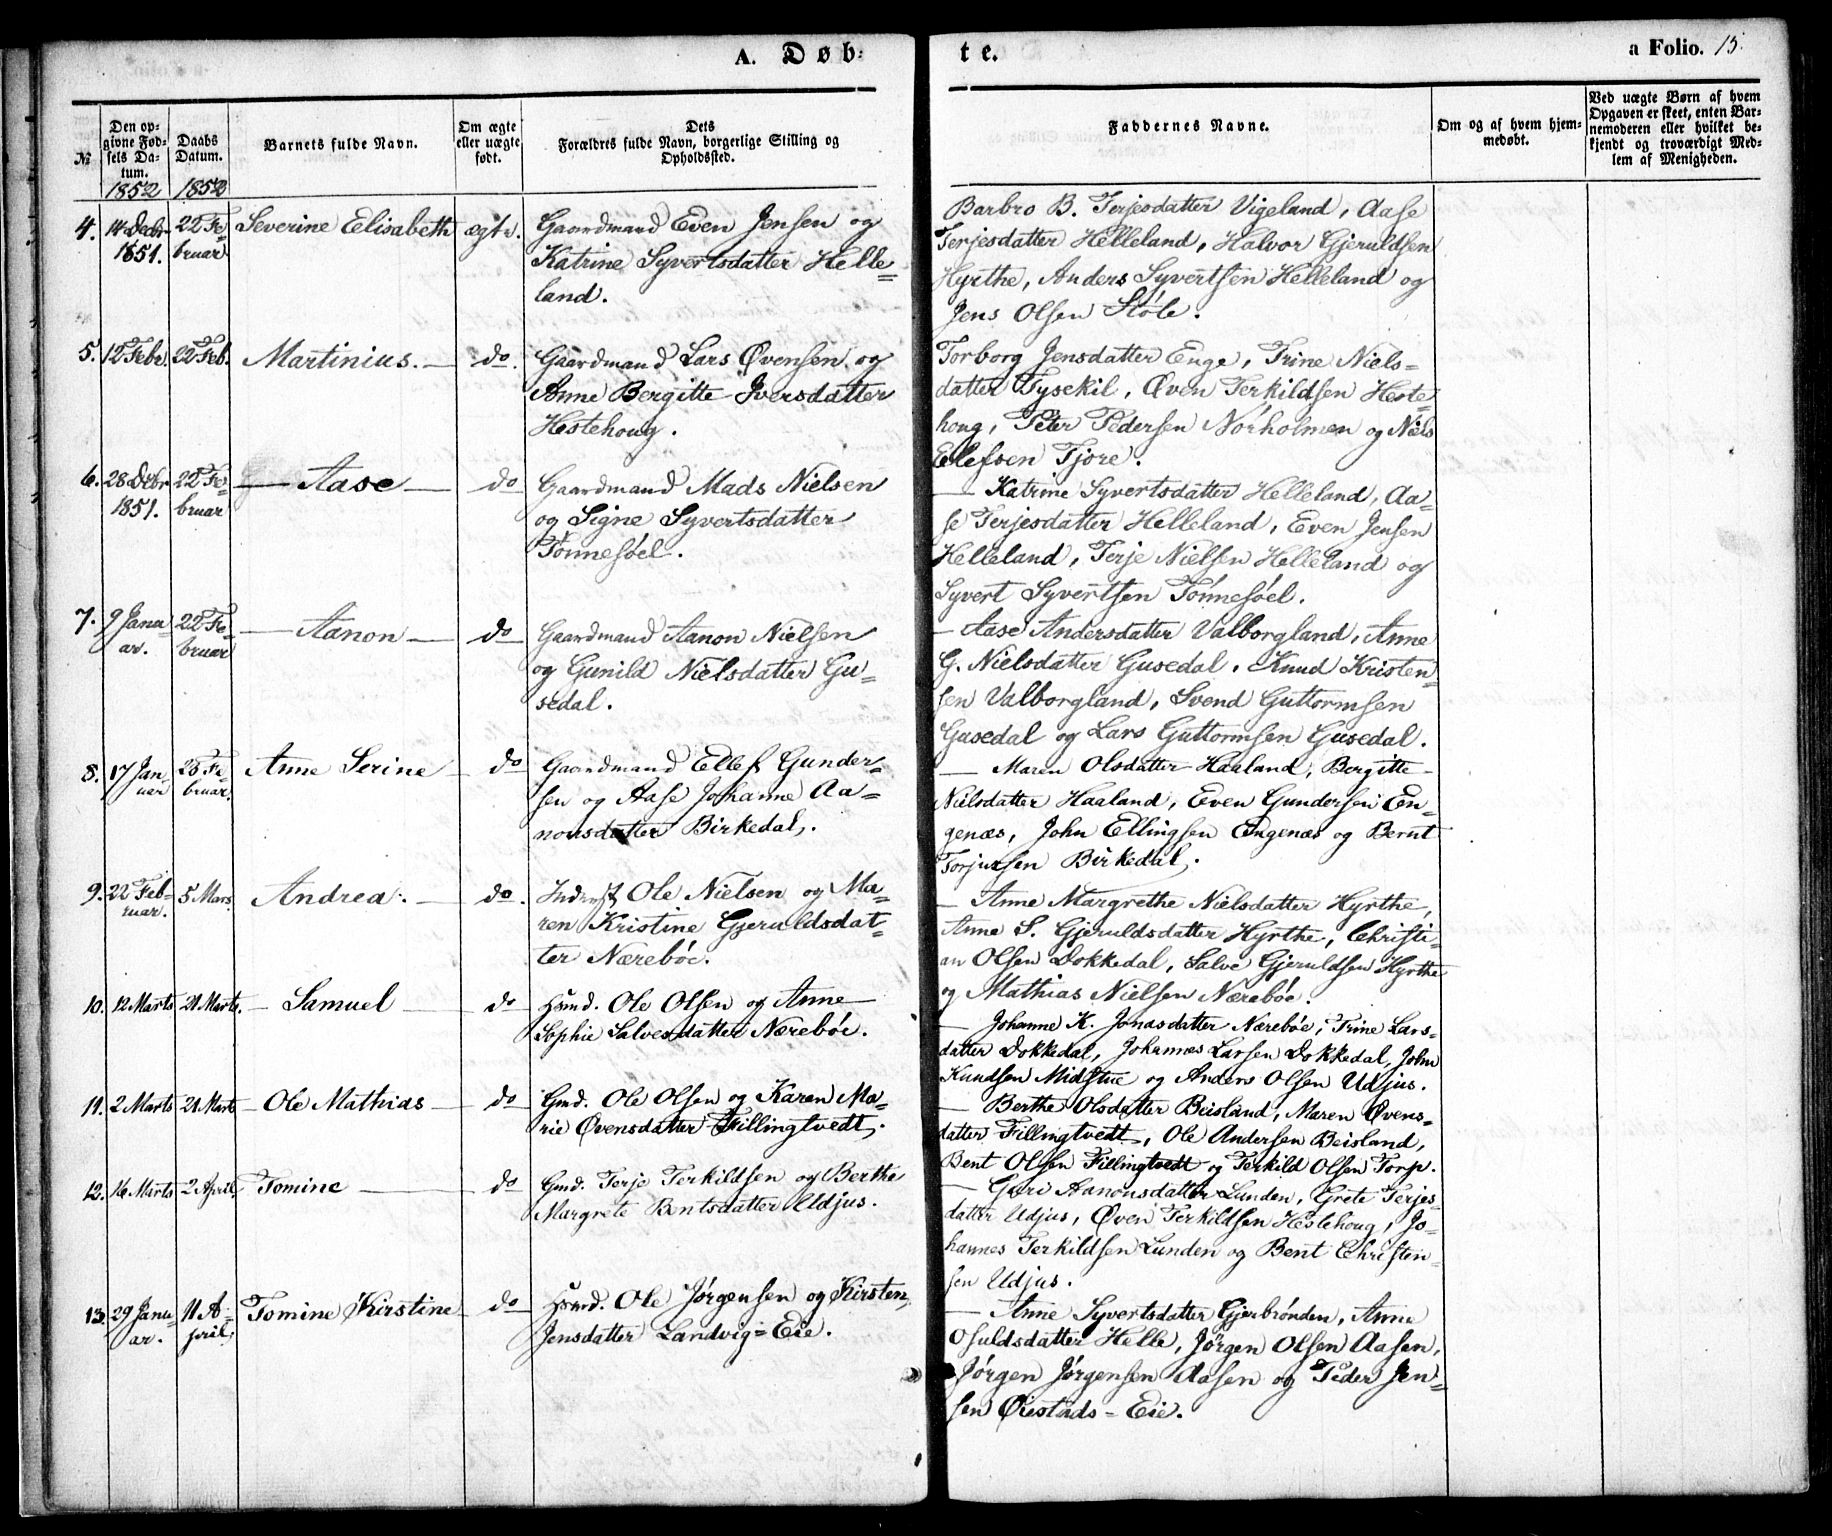 A. Døb-
te.
a Folio. 15.
№
Den op-
givne Fød-
sels Da-
tum.
1852
Daabs
Datum.
1852
Barnets fulde Navn.
Om ægte
eller uægte
født.
Dets
Forældres fulde Navn, borgerlige Stilling og
Opholdssted.
Faddernes Navne.
Om og af hvem hjem-
medøbt.
Ved uægte Børn af hvem
Opgaven er skeet, enten Bar-
nemoderen eller hvilket be-
kjendt og troværdigt Med-
lem af Menigheden.
4. 14 Decbr 22 Fe- Severine Elisabeth ægte. Gaardmand Even Jensen og
1851. bruar Katrine Syvertsdatter Helle-
land.
Barbro B. Terjesdatter Vigeland, Aase
Terjesdatter Helleland, Halvor Gjeruldsen
Hyrthe, Anders Syvertsen Helleland og
Jens Olsen Støle.
5. 12 Febr. 22 Feb. Martinius. do. Gaardmand Lars Øvensen og
Anne Bergitte Iversdatter
Hestehoug.
Torborg Jensdatter Enge, Trine Niels-
datter Tysekil, Øven Terkildsen Heste-
houg, Peter Pedersen Nørholmen og Niels
Elefsen Tjore.
6. 28 Decbr 22 Fe- Aase do Gaardmand Mads Nielsen
1851. bruar og Signe Syvertsdatter
Tønnesøel.
Katrine Syvertsdatter Helleland, Aa-
se Terjesdatter Helleland, Even Jensen
Helleland, Terje Nielsen Helleland og
Syvert Syvertsen Tønnesøel.
7. 9 Janu- 22 Fe- Aanon do Gaardmand Aanon Nielsen
ar. bruar og Gunild Nielsdatter Gu-
sedal.
Aase Andersdatter Valborgland, Anne
G. Nielsdatter Gusedal. Knud Kristen-
sen Valborgland, Svend Guttormsen
Gusedal og Lars Guttormsen Gusedal.
8. 17 Jan 25 Fe- Anne Serine do Gaardmand Ellef Gunder-
uar bruar. sen og Aase Johanne Aa-
nonsdatter Birkedal.
Maren Olsdatter Haaland, Bergitte
Nielsdatter Haaland, Even Gundersen En-
genæs, John Ellingsen Engenæs og Bernt
Torjussen Birkedal.
9. 22 Feb- 5 Mars. Andrea. do. Inderst Ole Nielsen og Ma-
ruar. ren Kristine Gjeruldsdat-
ter Nærebøe.
Anne Margrethe Nielsdatter Hyrthe,
Anne S. Gjeruldsdatter Hyrthe, Christi-
an Olsen Dokkedal, Salve Gjeruldsen Hyrthe
og Mathias Nielsen Nærebøe.
10. 12 Marts 21 Marts. Samuel do Hsmd. Ole Olsen og Anne
Sophie Salvesdatter Nærebøe.
Johanne K. Jonasdatter Nærebøe, Trine Lars-
datter Dokkedal, Johannes Larsen Dokkedal, John
Knudsen Midstue og Anders Olsen Udjus.
11. 2 Marts 21 Marts Ole Mathias do Gmd. Ole Olsen og Karen Ma-
rie Øvensdatter Fillingtvedt.
Berthe Olsdatter Beisland, Maren Øvens-
datter Fillingtvedt, Ole Andersen Beisland,
Bent Olsen Fillingtvedt og Terkild Olsen Torp.
12. 16 Marts 2 April, Tomine do Gmd. Terje Terkildsen og Berthe
Margrete Bentsdatter Udjus.
Guri Aanonsdatter Lunden, Grete Terjes-
datter Udjus, Øven Terkildsen Hestehoug, Jo-
hannes Terkildsen Lunden og Bent Christen-
sen Udjus.
13. 29 Janu- 11 A- Tomine Kirstine do Hsmd. Ole Jørgensen og Kirsten
ar. pril, Jensdatter Landvig-Eie.
Anne Syvertsdatter Gjerbrønden, Anne
Osuldsdatter Helle, Jørgen Olsen Aasen,
Jørgen Jørgensen Aasen og Peder Jen-
sen Øiestads-Eie.